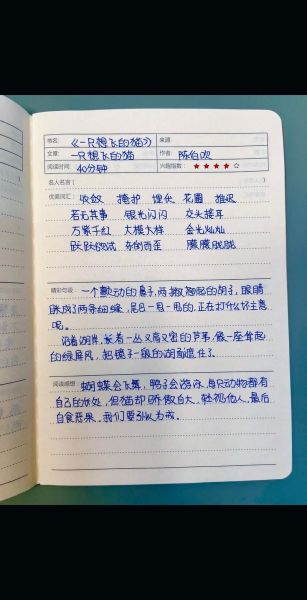 书名: 《一只想飞的猫》 来源:
文章: 一只想飞的猫 作者: 陈伯吹
阅读时间: 40分钟 兴趣指数: ★★★★☆
名人名言(
优美词汇: 收敛 掩护 埋头 花圃 推迟
若无其事 银光闪闪 交头接耳
万紫千红 大模大样 金光灿灿
跃跃欲试 东倒西歪 朦朦胧胧
精彩句段: 一个颤动的鼻子,两撇翘起的胡子,眼睛
眯成了两条细缝,尾巴一甩一甩的,正在打什么坏主意
呢。
沿着湖岸,长着一丛又高又密的芦苇,像一座耸起
的绿屏风,把镜子一般的湖面遮住了。
阅读感想: 蝴蝶会飞舞,鸭子会游泳,每只动物都有
自己的长处,但猫却骄傲自大,轻视他人,最后
自食恶果。我们要引以为戒。